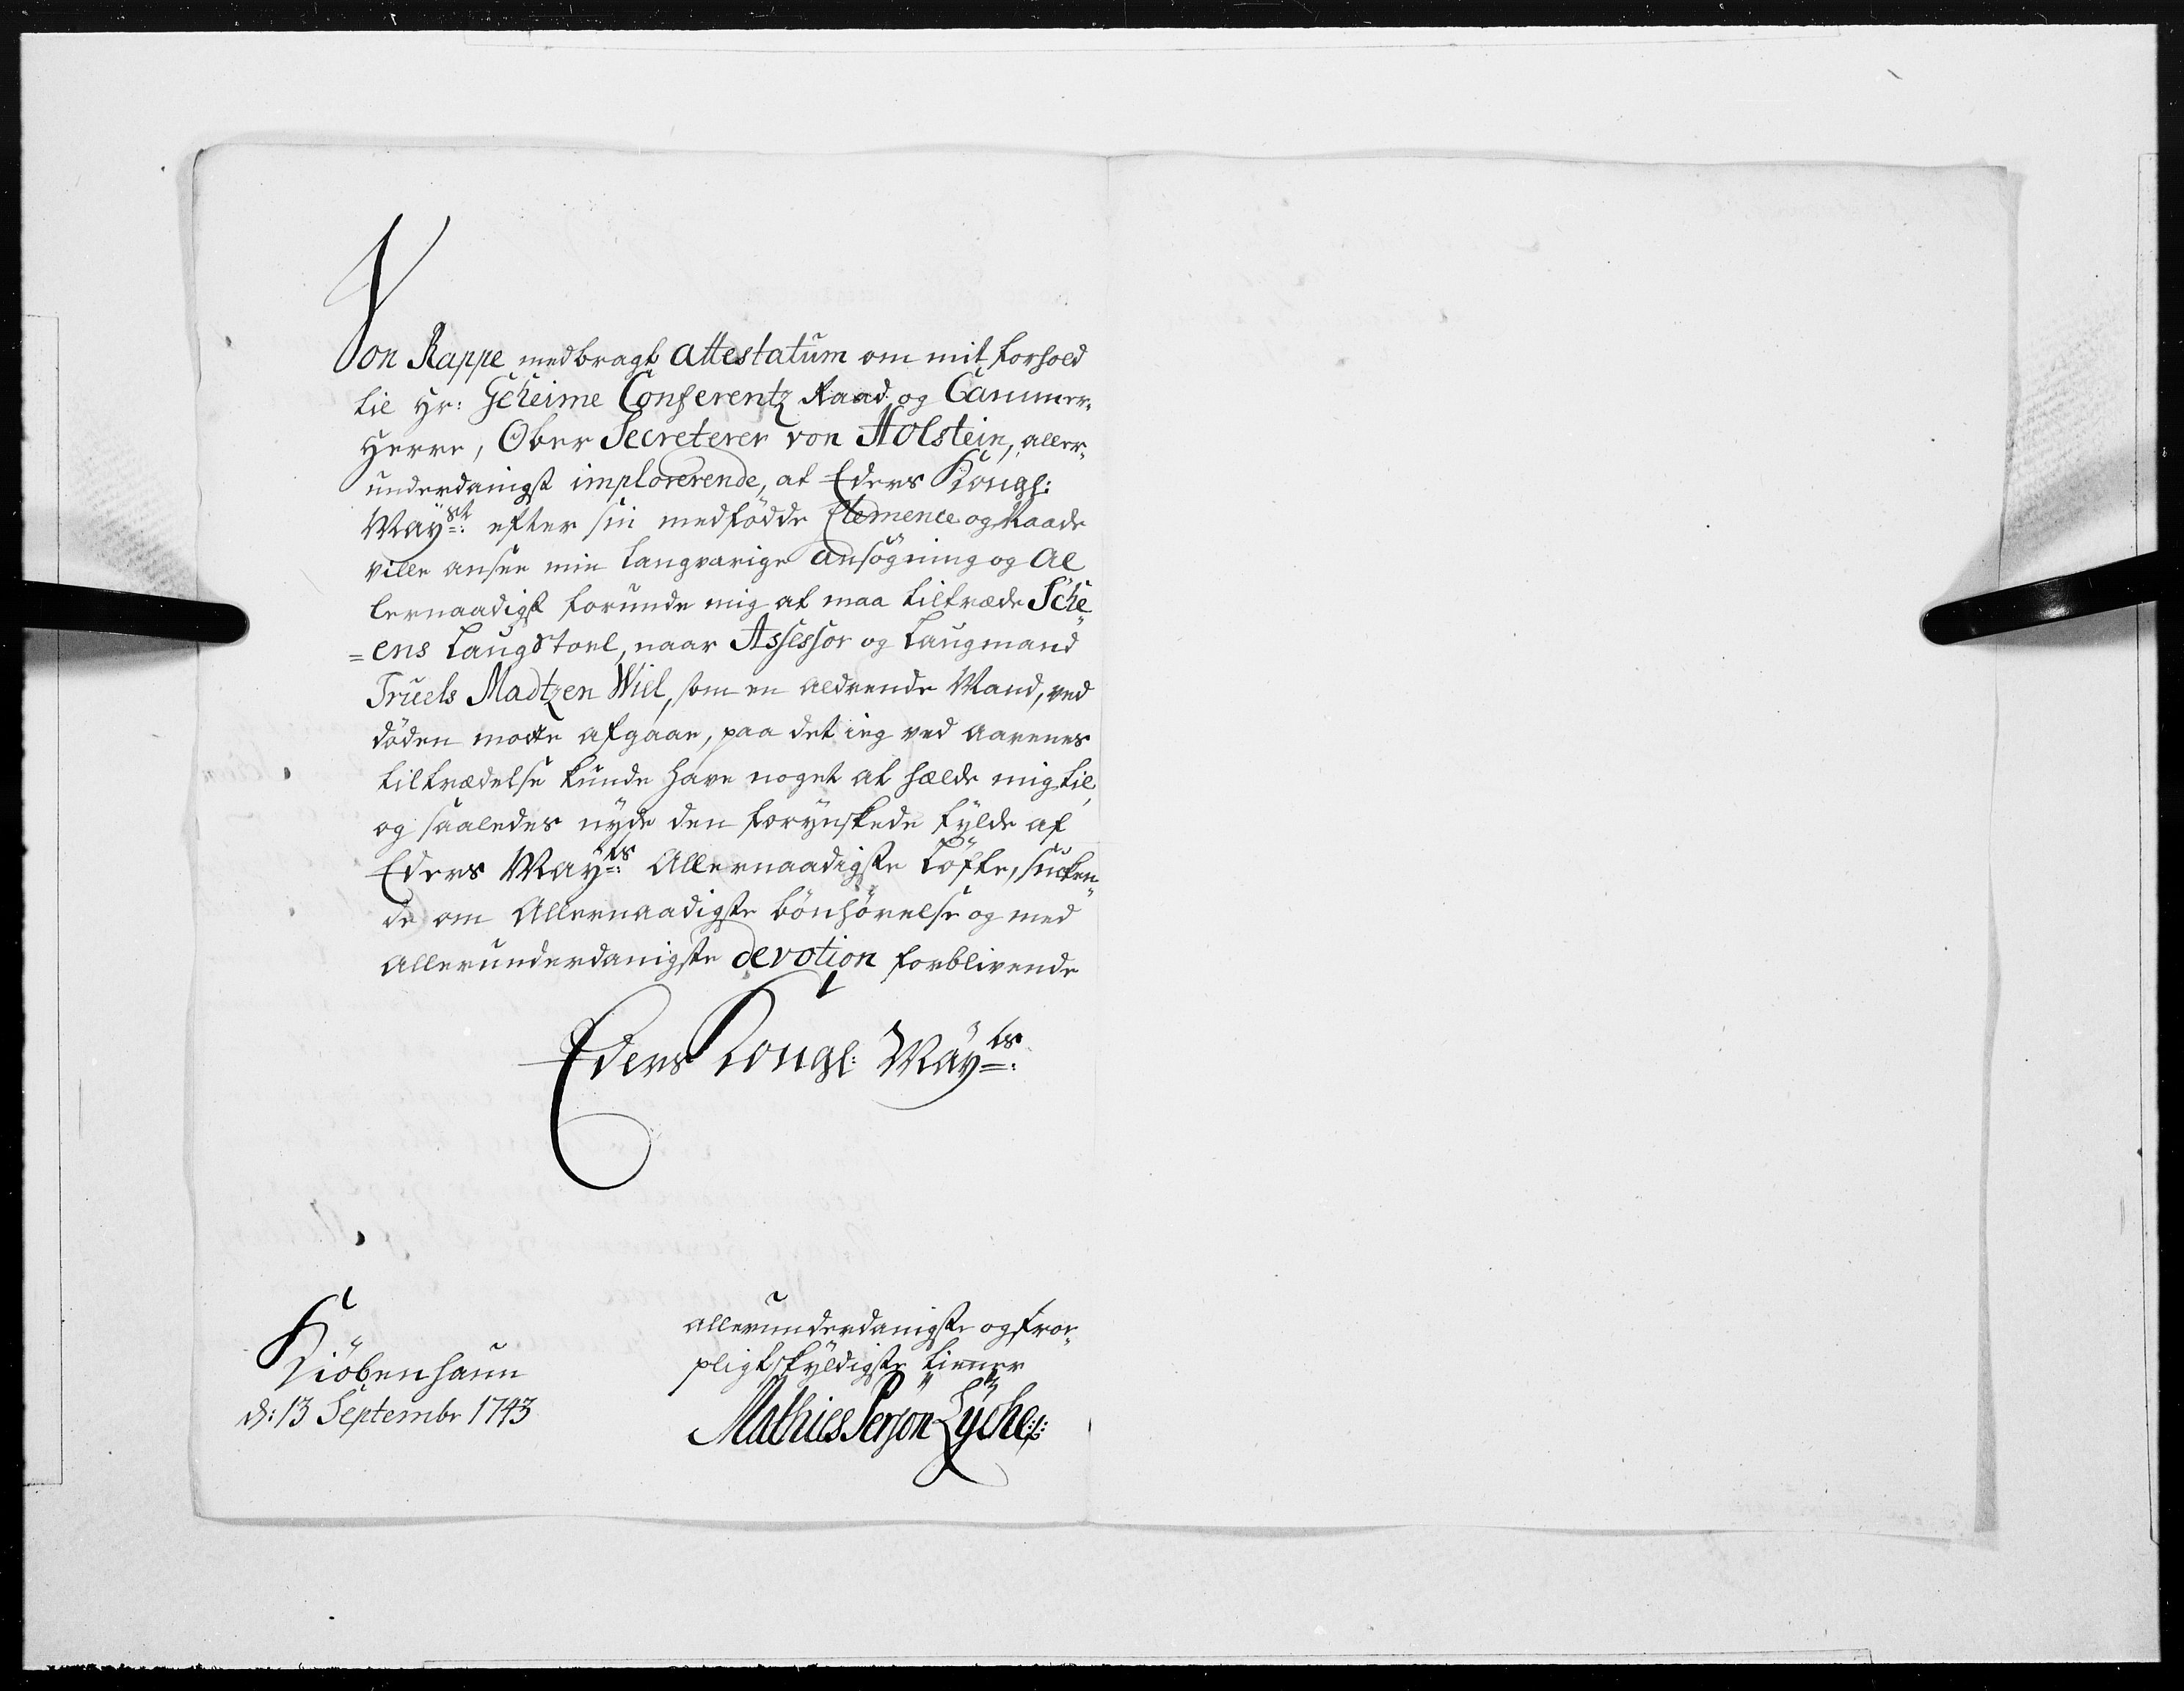 Von Rappe medbragt attestatum om mit forhold
til Hr: Geheime Conferentz Raad og Cammer„
Herre, Ober Secreterer von Holstein, aller„
underdanigst implorerende, at Eders Kongl:
Mayst: efter sin medfødde Clemence og Naade
ville ansee min langvarige ansøgning og Al
lernaadigst forunde mig at maa tiltræde Sche„
=ens Laugstoel, naar Assessor og Laugmand
Truels Madtzen Wiel, som en aldrende Mand, ved
døden motte afgaae, paa det ieg ved Aarenes
tiltrædelse kunde have noget at hælde mig til,
og saaledes nyde den forynskede fylde af
Eders Mayts: Allernaadigste Løfte, sucken„
de om Allernaadigste bønhørelse og med
Allerunderdanigste devotion forblivende
Eders Kongl: Mayts:
allerunderdanigste og troe„
pligtskyldigste tienner
Mathies Person Lyche
Kiøbenhaun
d: 13 Septembr 1743